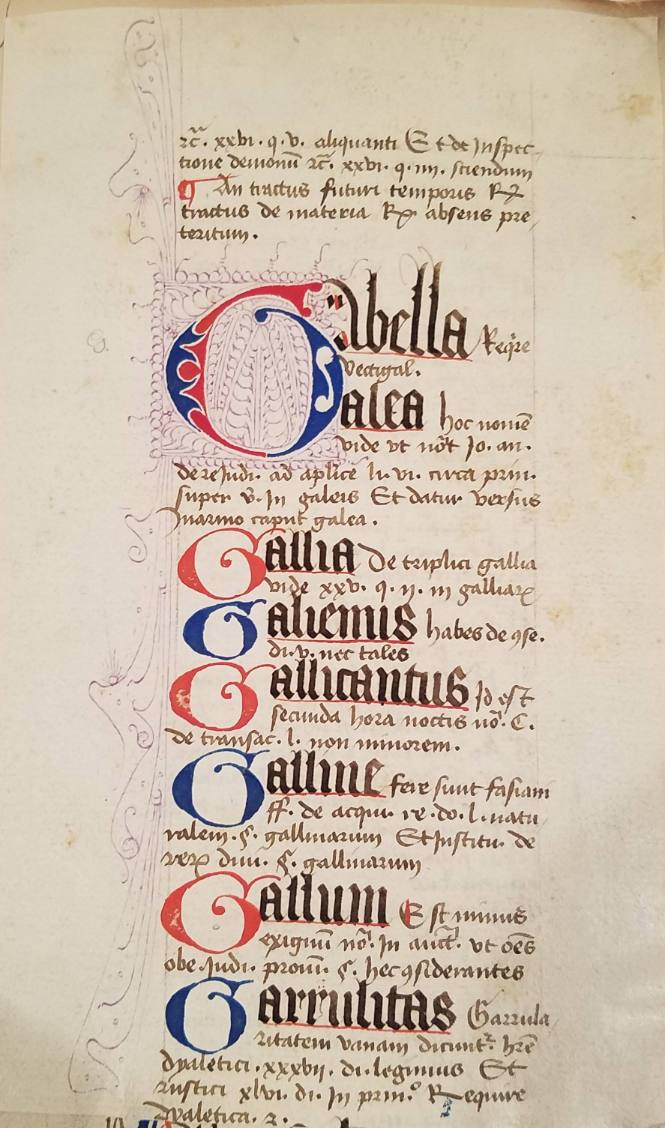 xxvi. q. v. aliquanti Et de Inspec
tione demonū xxvi. q. iiii. sciendum
¶ An tractus futuri temporis
tractus de materia absens pre
teritum.
Gabella Reqⁱre
vectigal.
Galea hoc nomē
vide vt nōt Jo. an.
de re Judi. ad aplice li. vi. circa prin.
super v̄. In galeis Et datur versus
marmo caput galea.
Gallia De triplici gallia
vide xxv. q. ii. in galliaꝝ
Galienus habes de ꝯse.
di. v. nec tales
Gallicantus Id est
secunda hora noctis no. C.
de transac. l. non minorem.
Galline fere sunt fasiani
ff. de acqui. re. do. l. natu
ralem. §. gallinarum Et Institu. de
reꝝ diui. §. gallinarum
Gallum Est minus
exiguū no. In auct. vt oēs
obe. Judi. prouin. §. hec ꝯsiderantes
Garrulitas Garrula
ritatem vanam dicunt hr̄e
dyaletici. xxxvii. di. legimus Et
rustici xlvi. di. In prin.º Require
dyaletica. 2.